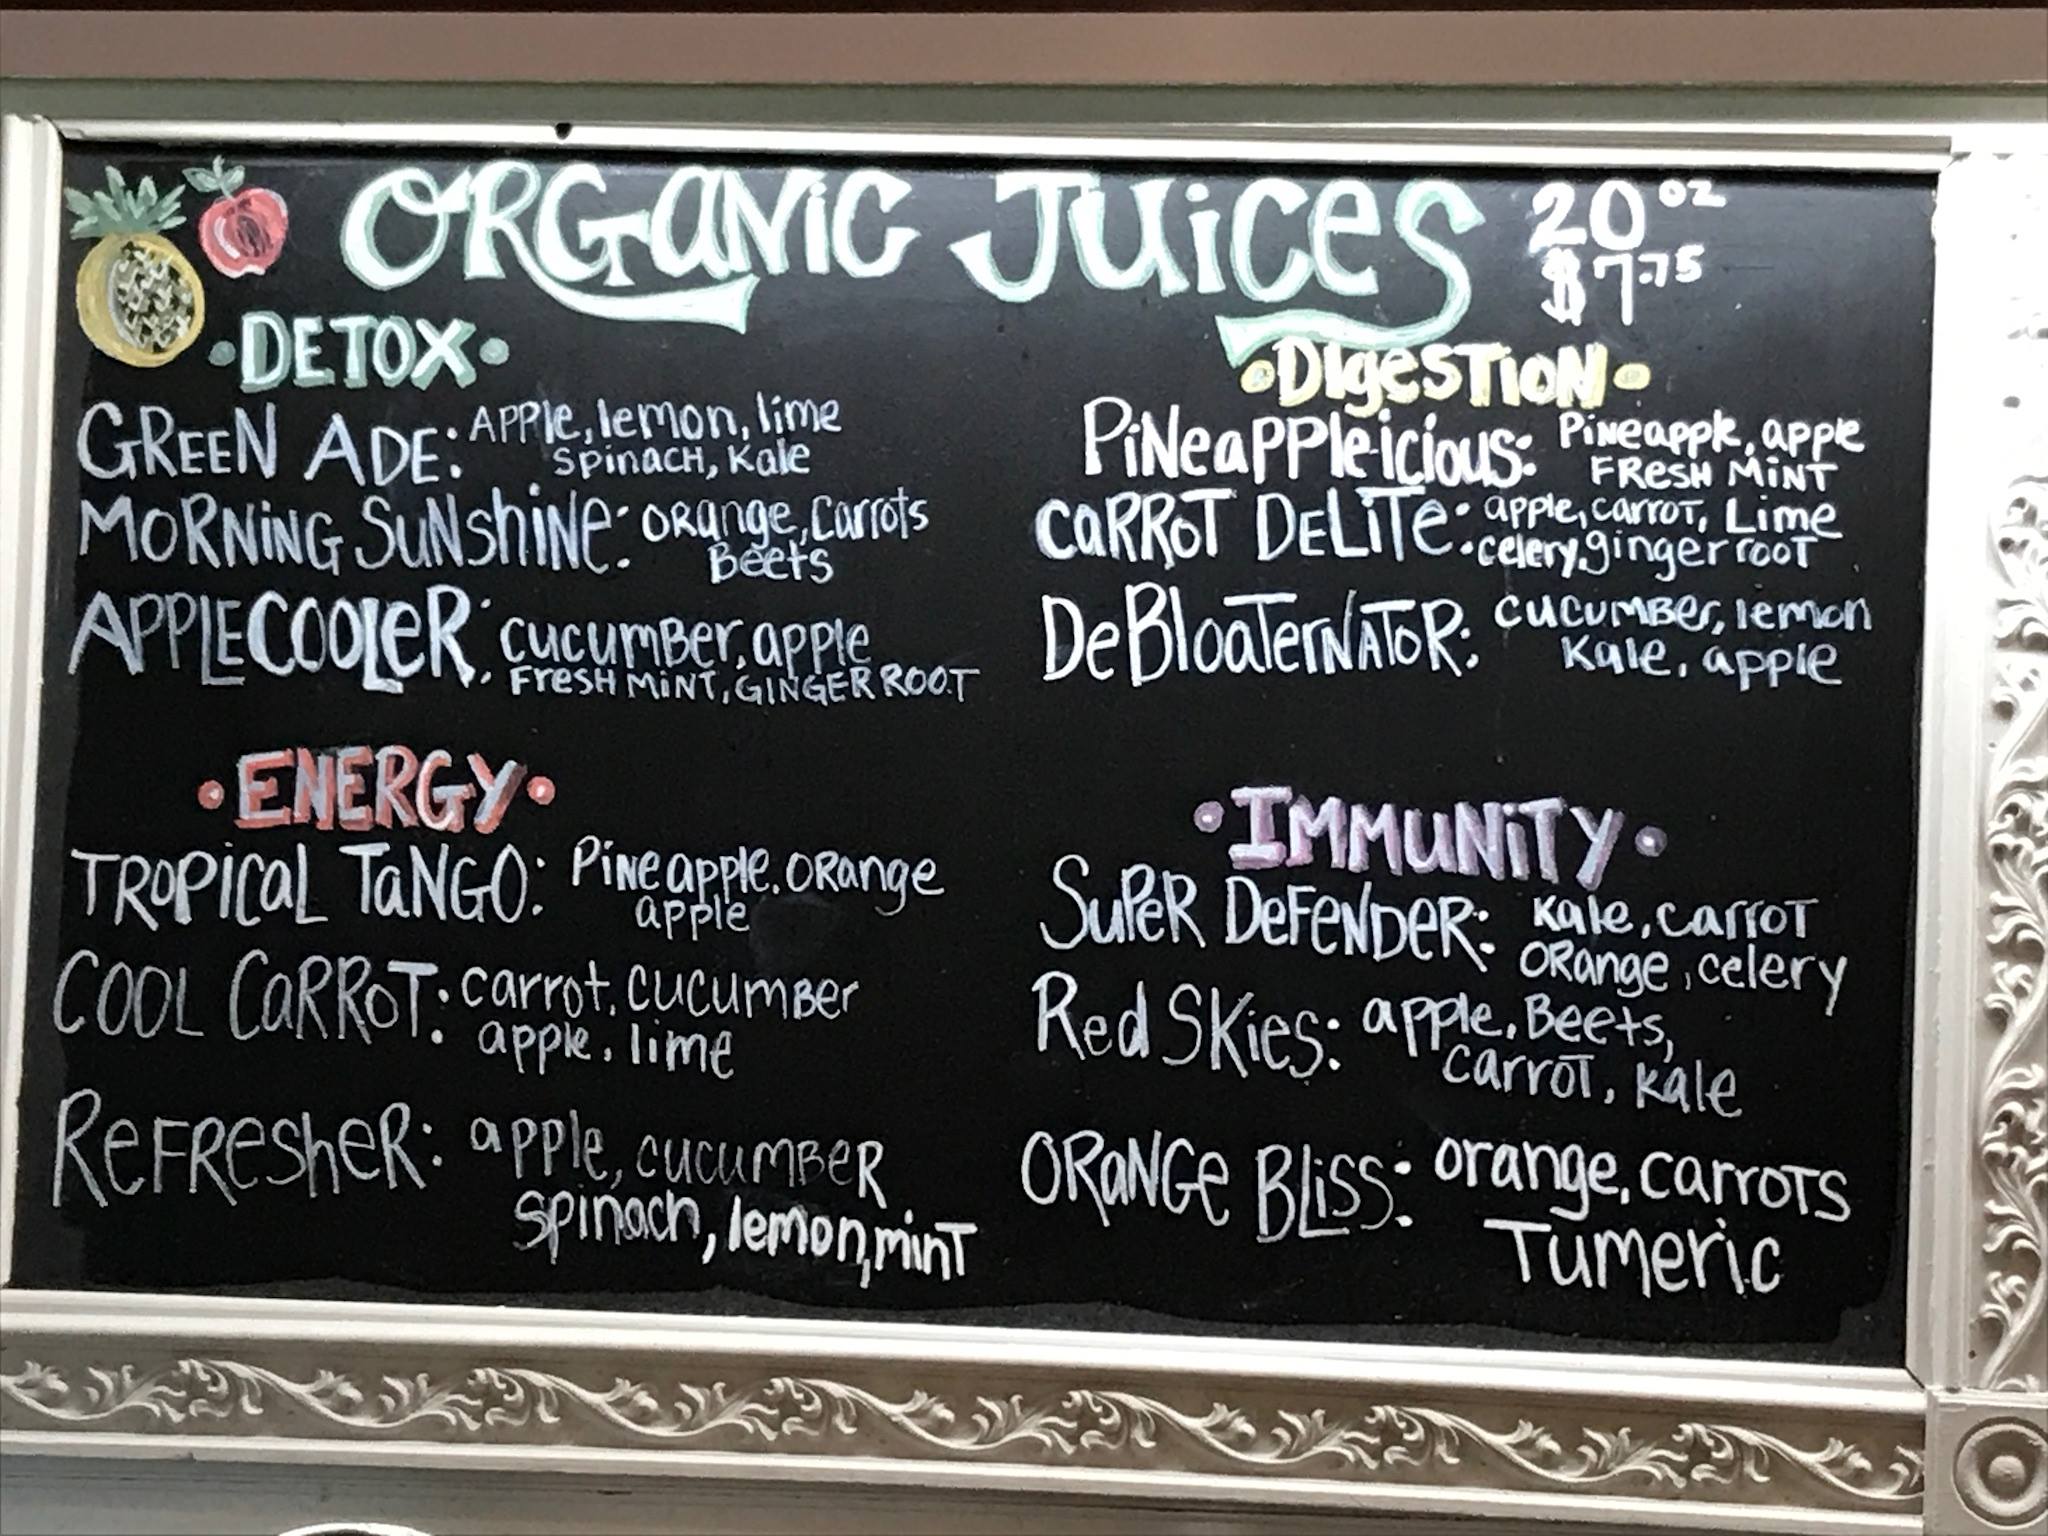 ORGANIC JUICES
20 OZ
$7.75
•DETOX•
GREEN ADE: APPle, lemon, lime
SPINACH, Kale
MORNING SUNSHINE: ORange, Carrots
Beets
APPLE COOLER: CUCUMBER, apple
FRESH MINT, GINGER ROOT
•ENERGY•
TROPICAL TANGO: PINEapple, ORange
apple
COOL CARROT: carrot, cucumber
apple, lime
REFRESHER: apple, cucumber
spinach, lemon, mint
•DIGESTION•
PINEAPPLE-ICIOUS: Pineapple, apple
FRESH MINT
CARROT DELITE: apple, carrot, Lime
celery, ginger root
DEBLOATERNATOR: CUCUMBER, lemon
Kale, apple
•IMMUNITY•
SUPER DEFENDER: Kale, carrot
ORange, celery
Red SKies: apple, Beets,
carrot, kale
ORANGE BLISS: orange, carrots
Tumeric